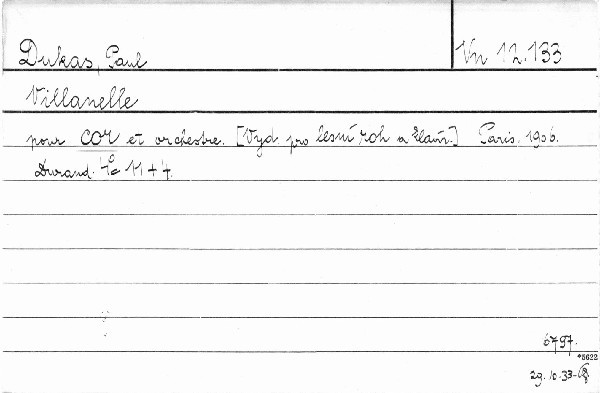 Dukas, Paul
Vn 12.133
Villanelle
pour cor et orchestre. [Vyd pro lesní roh a klavír.] Paris. 1906.
Durand. 4° 11 + 4.
6797.
*5622
29. 10. 33-